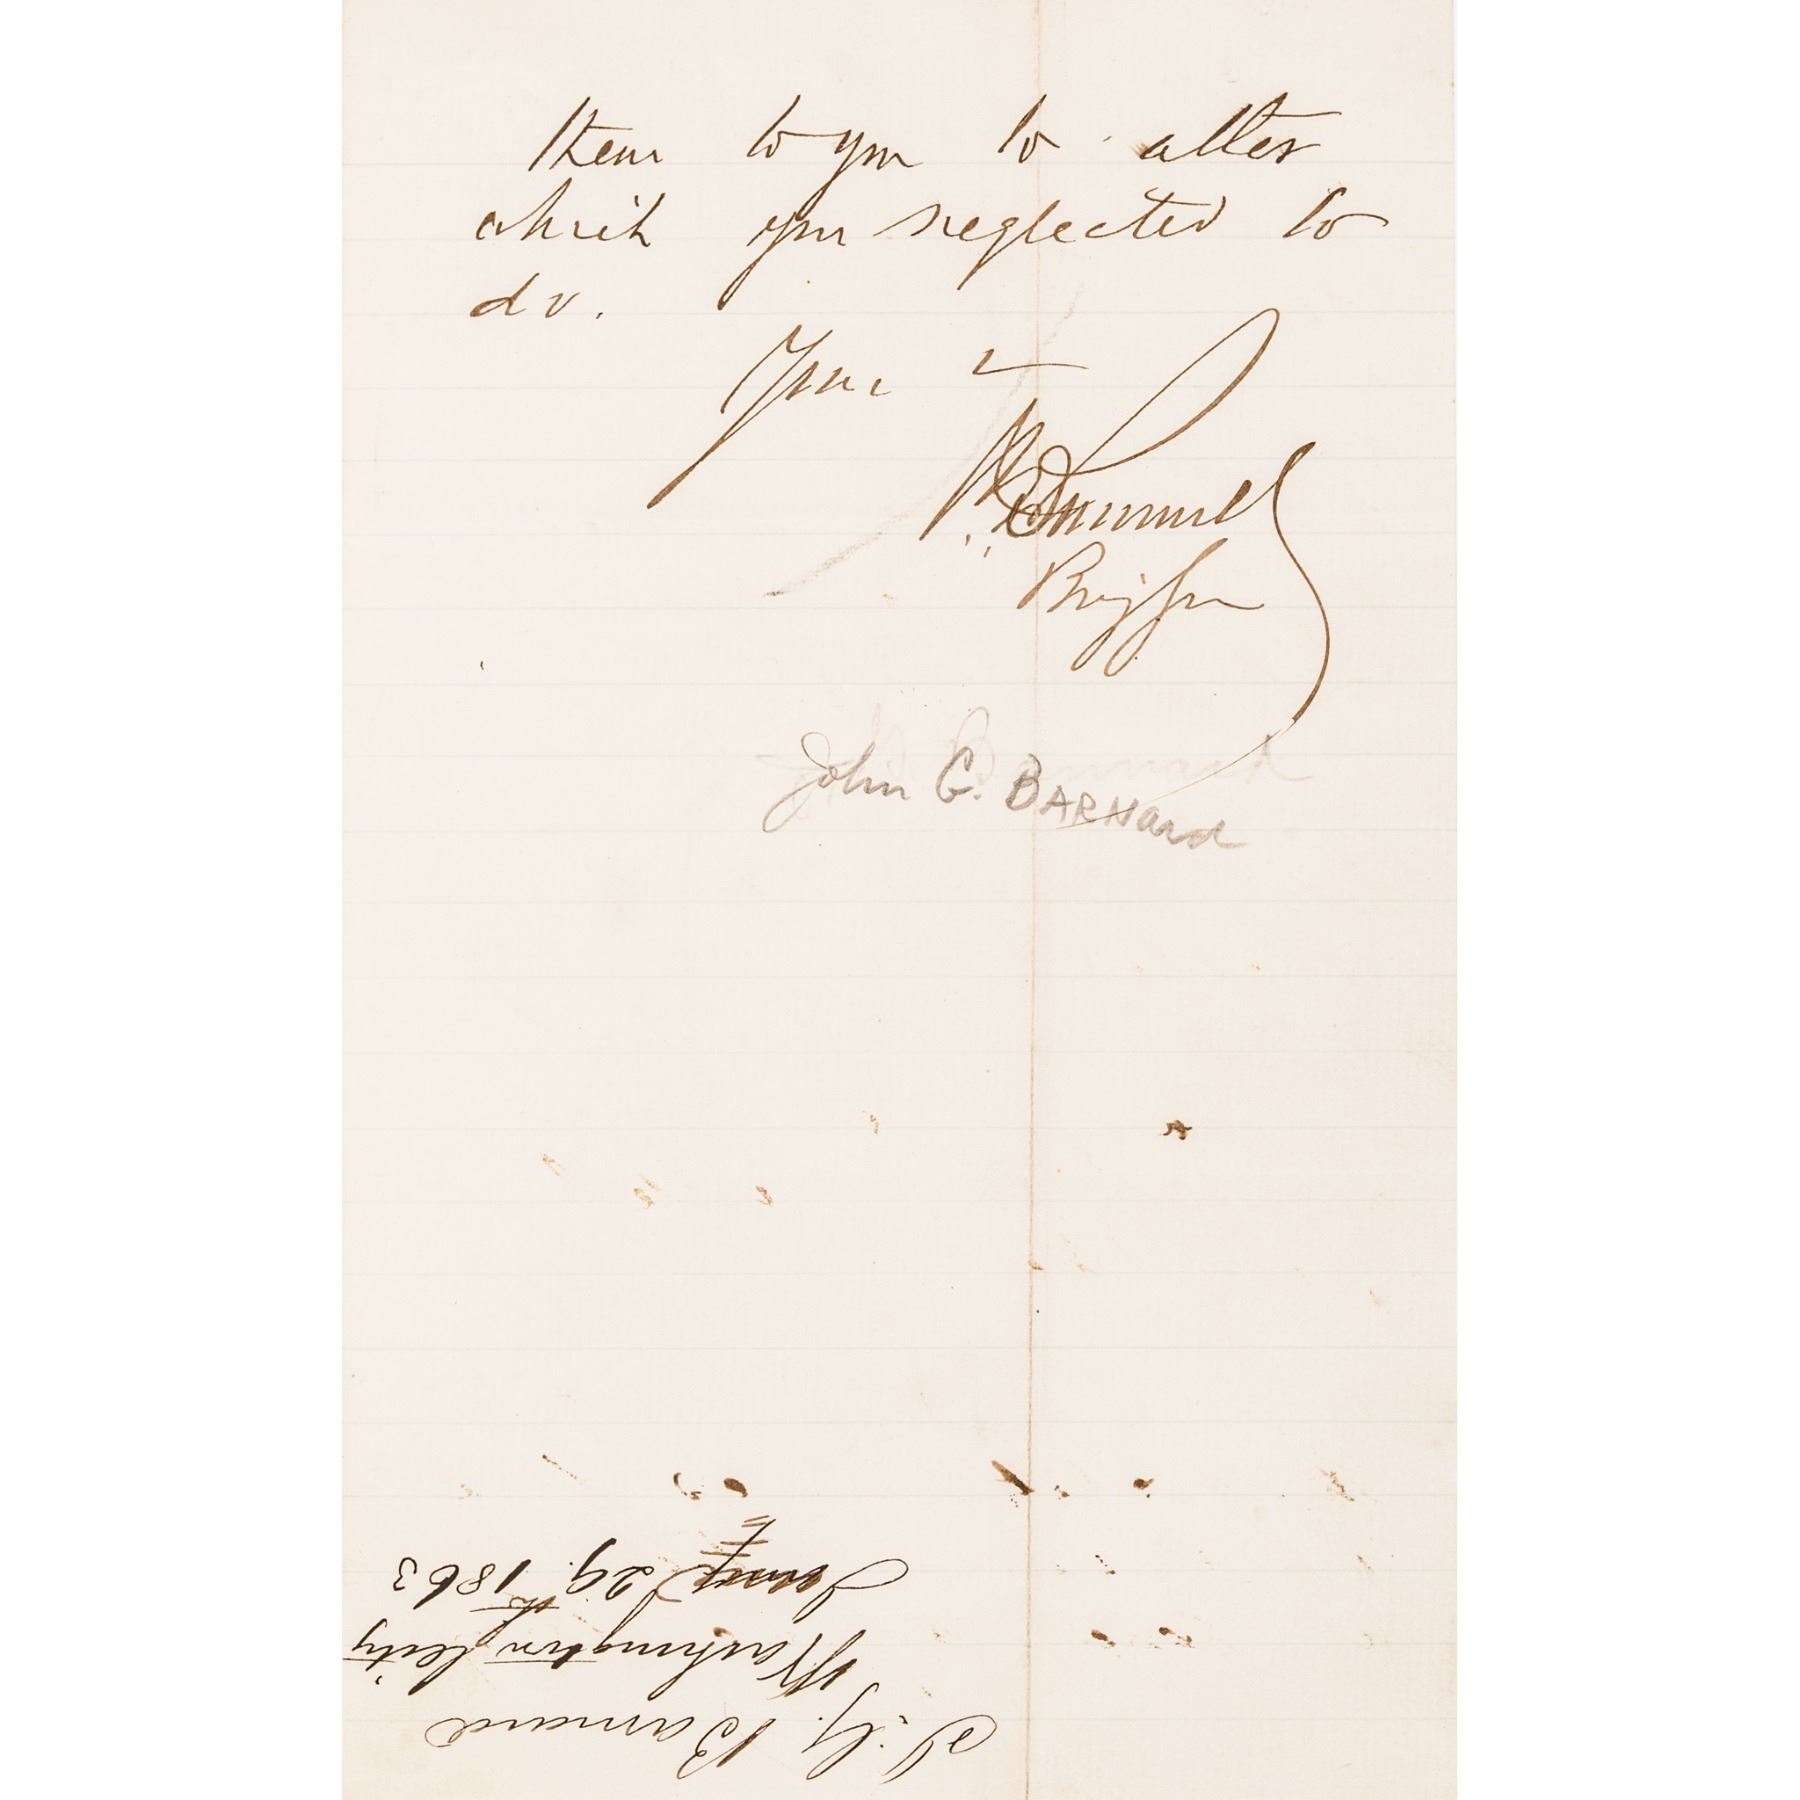 them to you to alter
which you neglected to
do.
Your
Brig Gen
John G. BARNARD
J. G. Barnard
Washington City
29th 1863